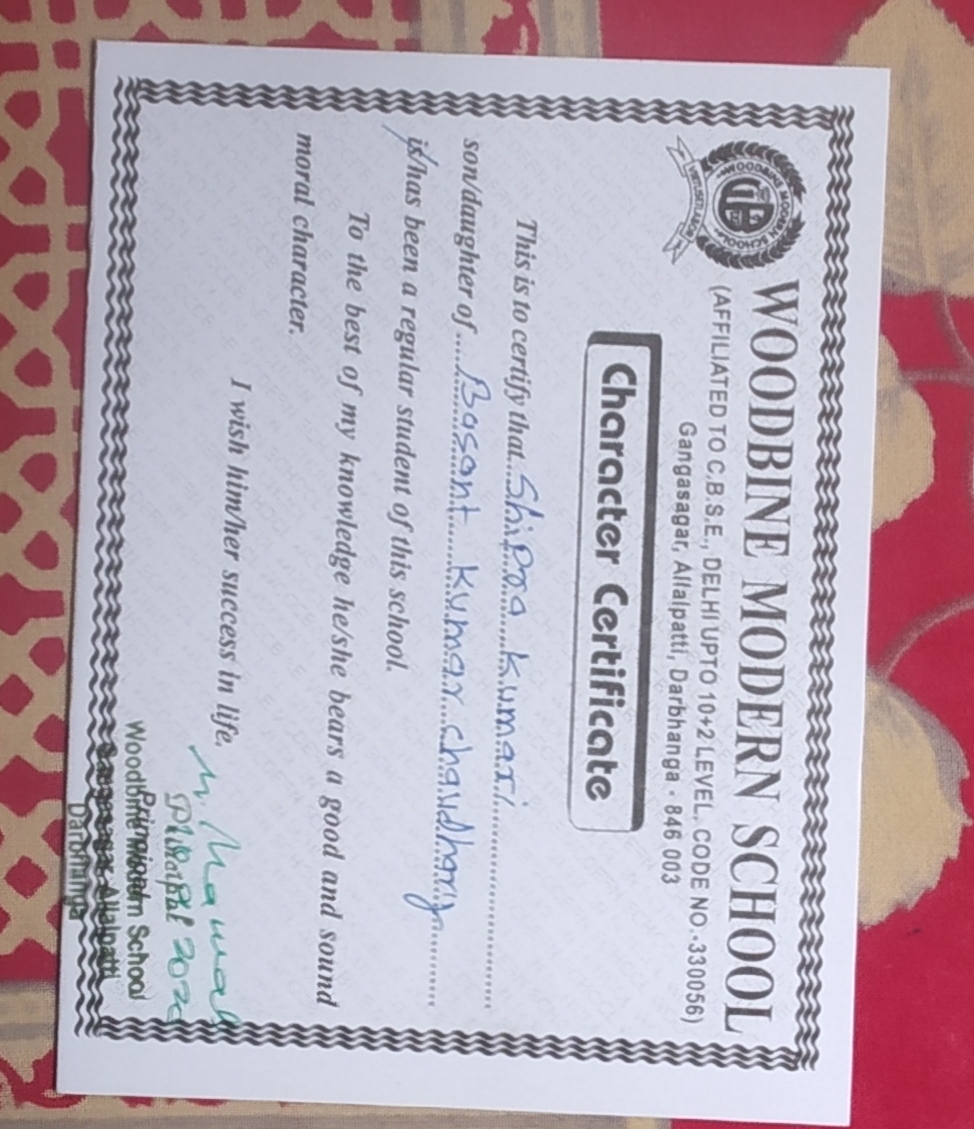 WOODBINE MODERN SCHOOL
(AFFILIATED TO C.B.S.E., DELHI UPTO 10+2 LEVEL, CODE NO.-330056)
Gangasagar, Allalpatti, Darbhanga - 846 003
WOODBINE MODERN SCHOOL
Character Certificate
This is to certify that Shipra Kumari
son/daughter of Basant Kumar Chaudhary
is/has been a regular student of this school.
To the best of my knowledge he/she bears a good and sound
moral character.
I wish him/her success in life.
Principal
Woodbine Modern School
Allalpatti
Darbhanga